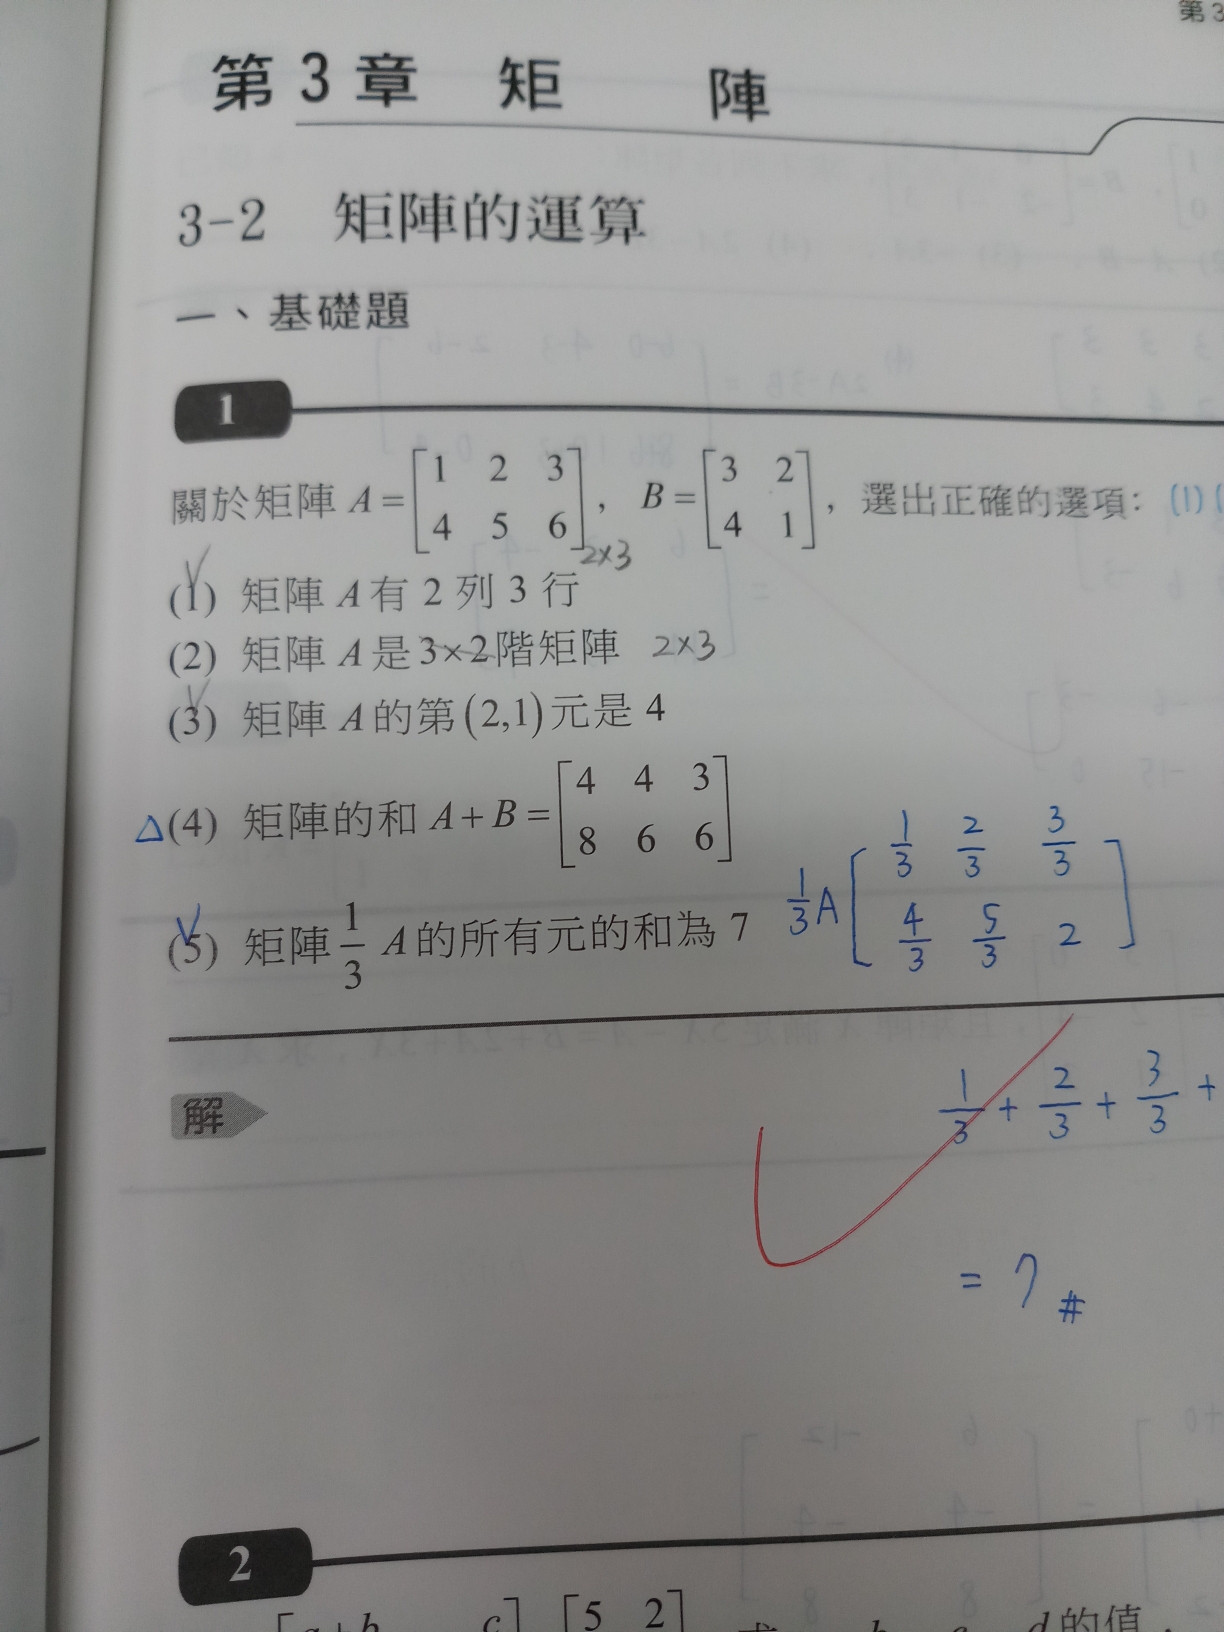 第3
第 3 章 矩 陣
3-2 矩陣的運算
一、基礎題
1
關於矩陣 A = [1 2 3; 4 5 6], B = [3 2; 4 1],選出正確的選項: (1)(
2×3
(1) 矩陣 A 有 2 列 3 行
(2) 矩陣 A 是 3×2 階矩陣 2×3
(3) 矩陣 A 的第 (2,1) 元是 4
△(4) 矩陣的和 A + B = [4 4 3; 8 6 6]
(5) 矩陣 1/3 A 的所有元的和為 7
1/3 A [1/3 2/3 3/3; 4/3 5/3 2]
解
1/3 + 2/3 + 3/3 +
= 7 #
2
[a+b c] [5 2] d 的值,